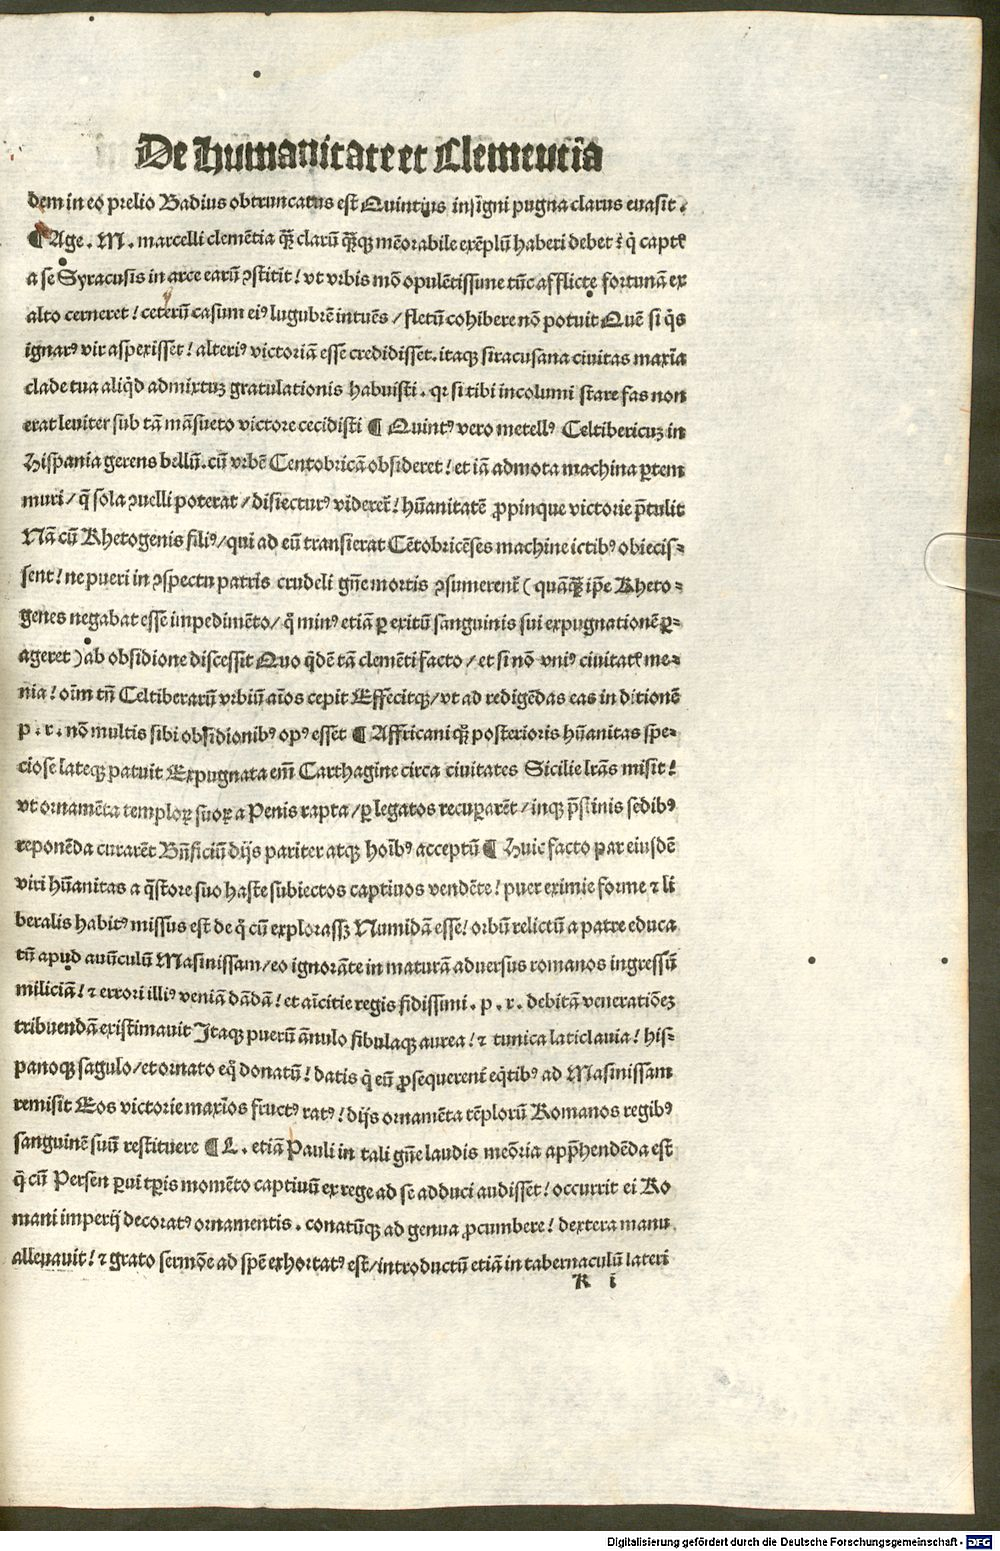 De humanitate et Clementīa
dem in eo prelio Badius obtruncatus est Quintius insigni pugna clarus euasit .
¶ Age . M . marcelli clemētia q̄ꝫ clarū q̄ꝫqꝫ mēorabile exēplū haberi debet : q̇ captꝭ
a se Syracusis in arce earū ɔstitit ! vt vrbis mō opulētissime tūc afflicte fortunā ex
alto cerneret ! ceterū casum eiꝰ lugubrē intuēs / fletū cohibere nō potuit Quē si q̇s
ignarꝰ vir aspexisset ! alteriꝰ victoriā esse credidisset . itaqꝫ siracusana ciuitas maxīa
clade tua aliq̇d admixtuꝫ gratulationis habuisti . qꝛ si tibi incolumi stare fas non
erat leuiter sub tā māsueto victore cecidisti ¶ Quintꝰ vero metellꝰ Celtibericuꝫ in
Hispania gerens bellū . cū vrbē Centobricā obsideret ! et iā admota machina ꝑtem
muri / q̄ sola ɔuelli poterat / disiecturꝰ videret̄ ! hūanitatē ꝓpinque victorie p̄tulit
Nā cū Rhetogenis filiꝰ / qui ad eū transierat Cētobricēses machine ictibꝰ obiecis⸗
sent ! ne pueri in ɔspectu patris crudeli gn̄e mortis ɔsumerent̄ ( quāqꝫ ip̄e Rheto⸗
genes negabat esse impedimēto / q̇ minꝰ etiā ꝑ exitū sanguinis sui expugnationē ꝑ⸗
ageret ) ab obsidione discessit Quo q̇dē tā clemēti facto / et si nō vniꝰ ciuitatꝭ me⸗
nia ! oīm tn̄ Celtiberarū vrbiū aīos cepit Effecitqꝫ / vt ad redigēdas eas in ditionē
p . r . nō multis sibi obsidionibꝰ opꝰ esset ¶ Affricani qꝫ posterioris hūanitas spe⸗
ciose lateqꝫ patuit Expugnata em̄ Carthagine circa ciuitates Sicilie lr̄as misit !
vt ornamēta temploꝝ suoꝝ a Penis rapta / ꝑ legatos recuꝑarēt / inqꝫ p̄stinis sedibꝰ
reponēda curarēt Bn̄ficiū dijs pariter atqꝫ hoībꝰ acceptū ¶ Huic facto par eiusdē
viri hūanitas a q̄store suo haste subiectos captiuos vendēte ! puer eximie forme ⁊ li
beralis habitꝰ missus est de q̇ cū explorassꝫ Numidā esse ! orbū relictū a patre educa
tū apud auūculū Masinissam / eo ignorāte in maturā aduersus romanos ingressū
miliciā ! ⁊ errori illiꝰ veniā dādā ! et aīcitie regis fidissimi . p . r . debitā veneratiōeꝫ
tribuendā existimauit Itaqꝫ puerū ānulo fibulaqꝫ aurea ! ⁊ tunica laticlauia ! his⸗
panoqꝫ sagulo / et ornato eq̇ donatū ! datis q̇ eū ꝓsequerent̄ eq̇tibꝰ ad Masinissam
remisit Eos victorie maxīos fructꝰ ratꝰ ! dijs ornamēta tēplorū Romanos regibꝰ
sanguinē suū restituere ¶ L . etiā Pauli in tali gn̄e laudis meōria app̄hendēda est
q̇ cū Persen ꝑui tꝑis momēto captiuū ex rege ad se adduci audisset ! occurrit ei Ro
mani imperij decoratꝰ ornamentis . conatūqꝫ ad genua ꝓcumbere ! dextera manu
alleuauit ! ⁊ grato sermōe ad spē exhortatꝰ est / introductū etiā in tabernaculū lateri
K i
Digitalisierung gefördert durch die Deutsche Forschungsgemeinschaft - DFG